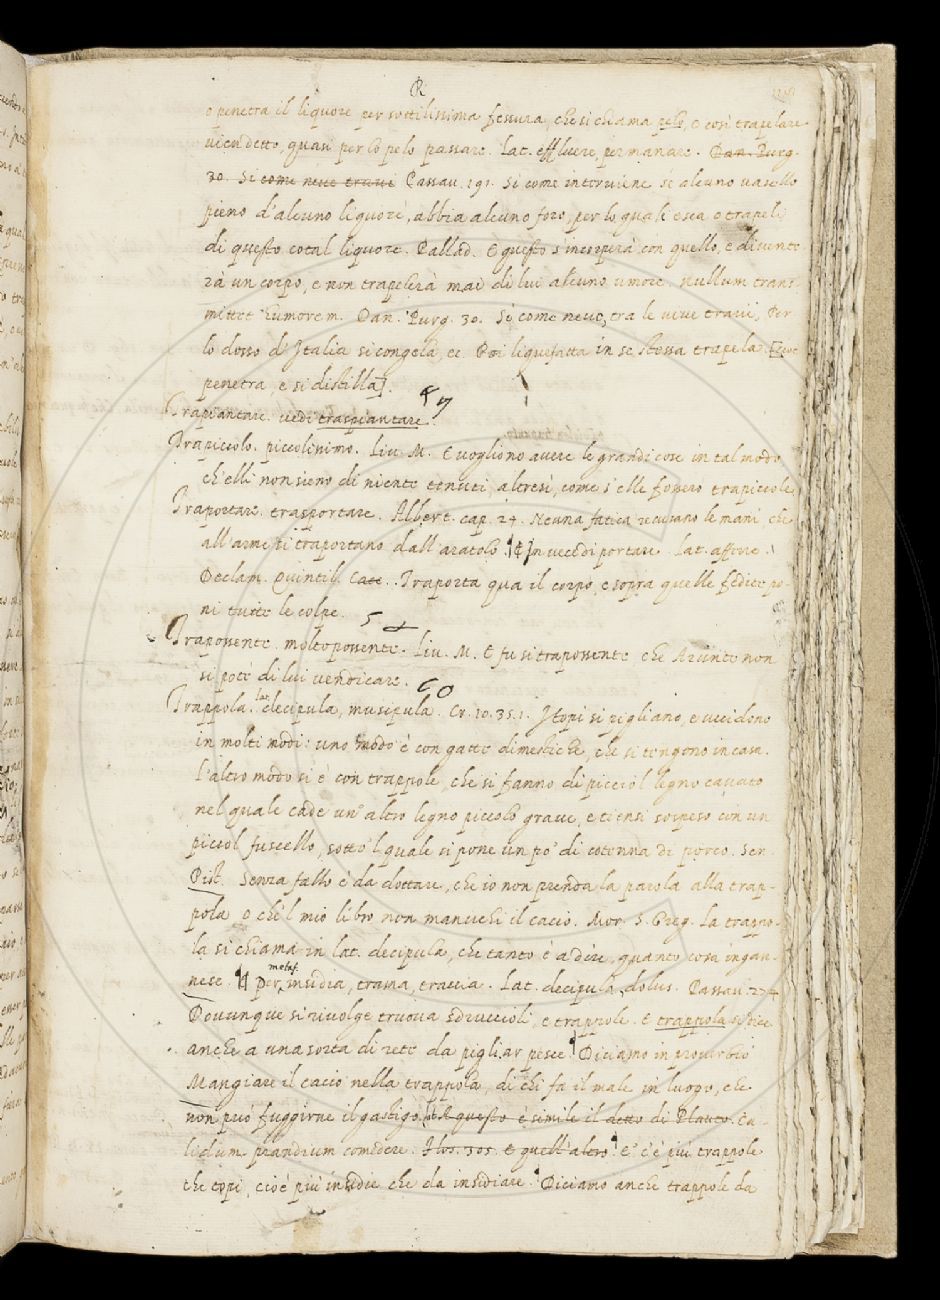 R
e penetra il liquore per sottilissima fessura, che si chiama pelo, e così trapelare
vien detto, quasi per lo pelo passare. Lat. effluere, permanare. Dan. Purg.
30. Si come neve travi Passav. 191. Si come interviene se alcuno vasello
pieno d'alcuno liquore, abbia alcuno foro, per lo quale esca o trapeli
di questo cotal liquore. Pallad. E questo s'incorpera con quello, e divente
rà un corpo, e non trapelerà mai di lui alcuno umore. nullum trans-
mittet humorem. Dan. Purg. 30. Si come neve, tra le vive travi, Per
lo dosso d'Italia si congela, ec. Poi liquefatta in se stessa trapela. [cioè
penetra, e si distilla].
Trapiantare. vedi traspiantare.
Trapiccolo. piccolissimo. Liv. M. E vogliono avere le grandi cose in tal modo
ch'elli non sieno di niente tenuti, altresì, come s'elle fossero trapiccole.
Traportare. trasportare. Albert. cap. 24. Neuna fatica recusano le mani che
all'arme si traportano dall'aratolo. In vece di portare. Lat. afferre.
Declam. Quintil. Traporta qua il corpo, e sopra quelle fedite po-
ni tutte le colpe.
Trapossente. molto possente. Liv. M. E fu si trapossente che Arunte non
si potè di lui vendicare.
Trappola. lat. decipula, muscipula. Cr. 10. 35. 1. I topi si pigliano, e uccidono
in molti modi: uno modo è con gatte dimestiche, che si tengono in casa.
L'altro modo si è con trappole, che si fanno di picciol legno cavato
nel quale cade un'altro legno piccolo grave, e tiensi sospeso con un
picciol fuscello, sotto 'l quale si pone un po' di cotenna di porco. Sen.
Pist. Senza fallo è da dottare, che io non prenda la parola alla trap-
pola o che 'l mio libro non manuchi il cacio. Mor. S. Greg. la trappo-
la si chiama in lat. decipula, che tanto è a dire, quanto cosa ingan-
nese. Per metaf. insidia, trama, traccia. Lat. decipula, dolus. Passav. 274
Dovunque si rivolge truova sdruccioli, e trappole. E trappola si dice
anche a una sorta di rete da pigliar pesce. Diciamo in proverbio
Mangiare il cacio nella trappola, di chi fa il male in luogo, che
non può fuggirne il gastigo. A questo è simile il detto di Plauto. Ca-
lidum prandium comedere. Flos. 305. E quell'altro. E' c'è più trappole
che topi, cioè più insidie che da insidiare. Diciamo anche trappole da